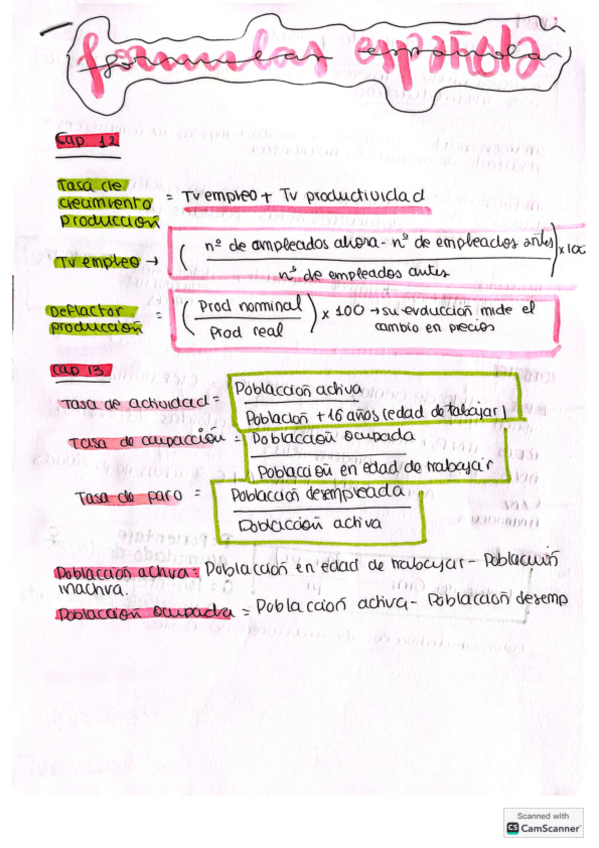 formulas española
Cap 12
Tasa de
crecimiento = Tv empleo + Tv productividad
producción
Tv empleo → ( nº de empleados ahora - nº de empleados antes / nº de empleados antes ) x 100
Deflactor
producción = ( Prod nominal / Prod real ) x 100 → su evolución mide el
cambio en precios
Cap 13
Tasa de actividad = Poblacción activa
Población +16 años (edad de trabajar)
Tasa de ocupacción = Poblacción ocupada
Poblacción en edad de trabajar
Tasa de paro = Poblacción desempleada
Poblacción activa
Poblacción activa = Poblacción en edad de trabajar - Poblacción
inactiva.
Poblacción ocupada = Poblacción activa - Poblacción desemp
Scanned with
CS CamScanner